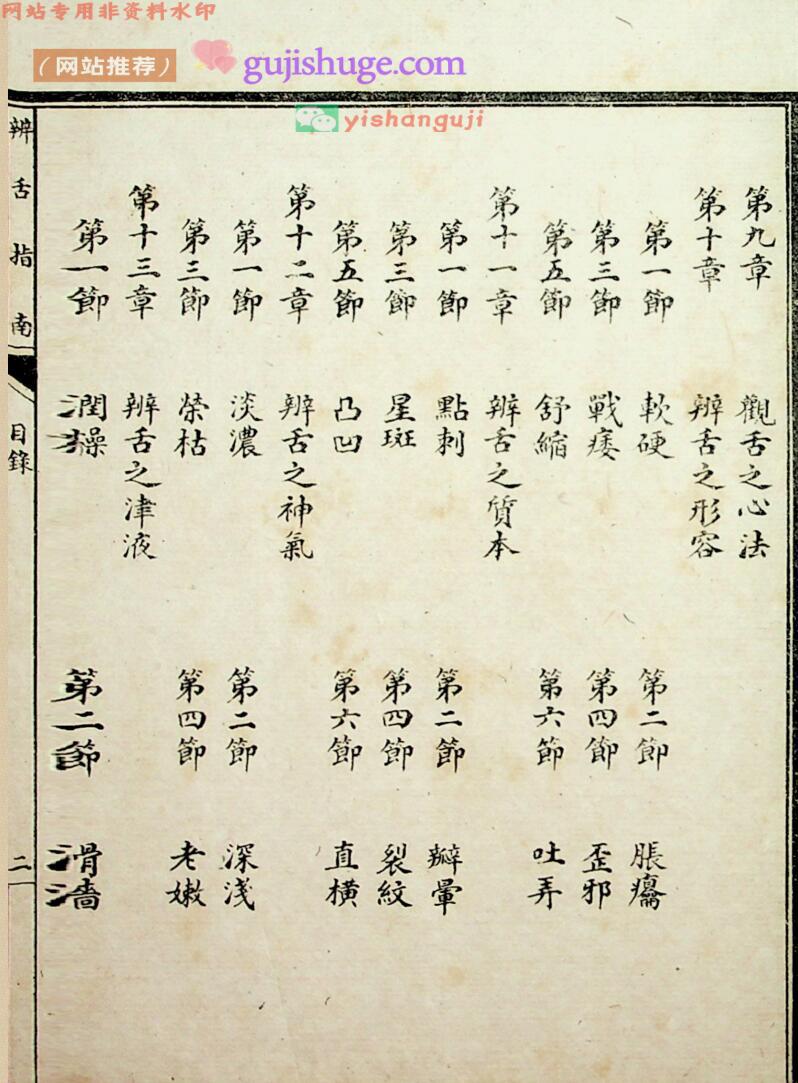 网站专用非资料水印
（网站推荐）
gujishuge.com
yishanguji
第九章 觀舌之心法
第十章 辨舌之形容
第一節 軟硬 第二節 脹癟
第三節 戰痿 第四節 歪邪
第五節 舒縮 第六節 吐弄
第十一章 辨舌之質本
第一節 點刺 第二節 瓣暈
第三節 星斑 第四節 裂紋
第五節 凸凹 第六節 直橫
第十二章 辨舌之神氣
第一節 淡濃 第二節 深淺
第三節 榮枯 第四節 老嫩
第十三章 辨舌之津液
第一節 潤燥 第二節 滑濇
辨舌指南 目錄 二